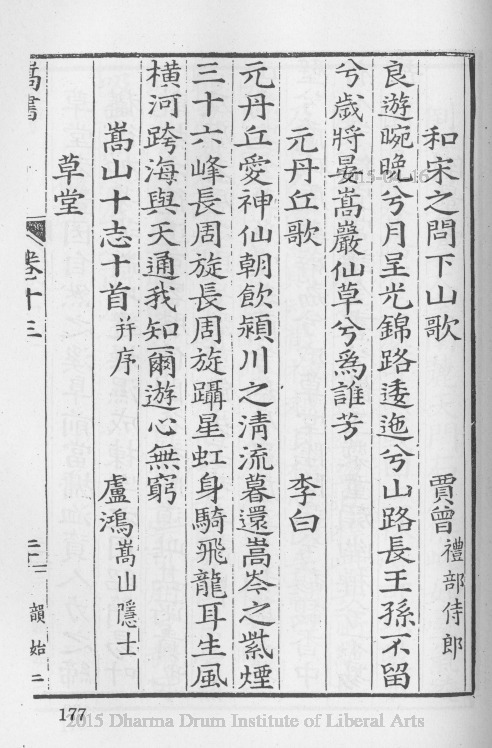 和宋之問下山歌 賈曾禮部侍郎
良遊晼晚兮月呈光錦路逶迤兮山路長王孫不留
兮歲將晏嵩巖仙草兮為誰芳
元丹丘歌 李白
元丹丘愛神仙朝飲潁川之清流暮還嵩岑之紫煙
三十六峰長周旋長周旋躡星虹身騎飛龍耳生風
橫河跨海與天通我知爾遊心無窮
嵩山十志十首并序 盧鴻嵩山隱士
草堂
嵩書 卷十三 二十 韻始二
177
2015 Dharma Drum Institute of Liberal Arts